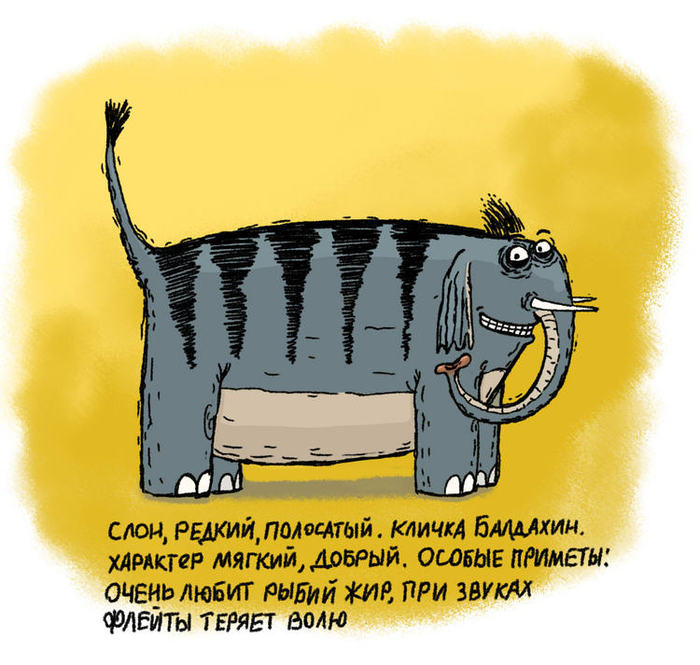 Слон, редкий, полосатый. Кличка Балдахин.
Характер мягкий, добрый. Особые приметы:
очень любит рыбий жир, при звуках
флейты теряет волю